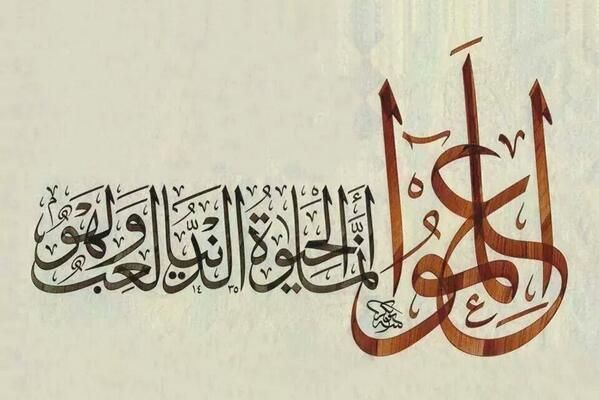 اعلموا أنما الحيوة الدنيا لعب ولهو
١٤٣٥